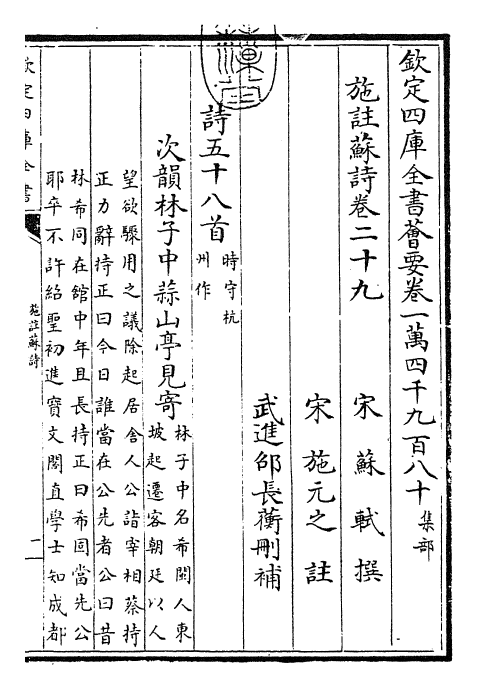 欽定四庫全書薈要卷一萬四千九百八十 集部
施註蘇詩卷二十九
宋 蘇軾 撰
宋 施元之 註
武進邵長蘅刪補
詩五十八首
時守杭
州作
次韻林子中蒜山亭見寄
林子中名希閩人東
坡起遷客朝廷以人
望欲驟用之議除起居舍人公詣宰相蔡持
正力辭持正曰今日誰當在公先者公曰昔
林希同在館中年且長持正曰希固當先公
耶卒不許紹聖初進寶文閣直學士知成都
欽定四庫全書
施註蘇詩
一